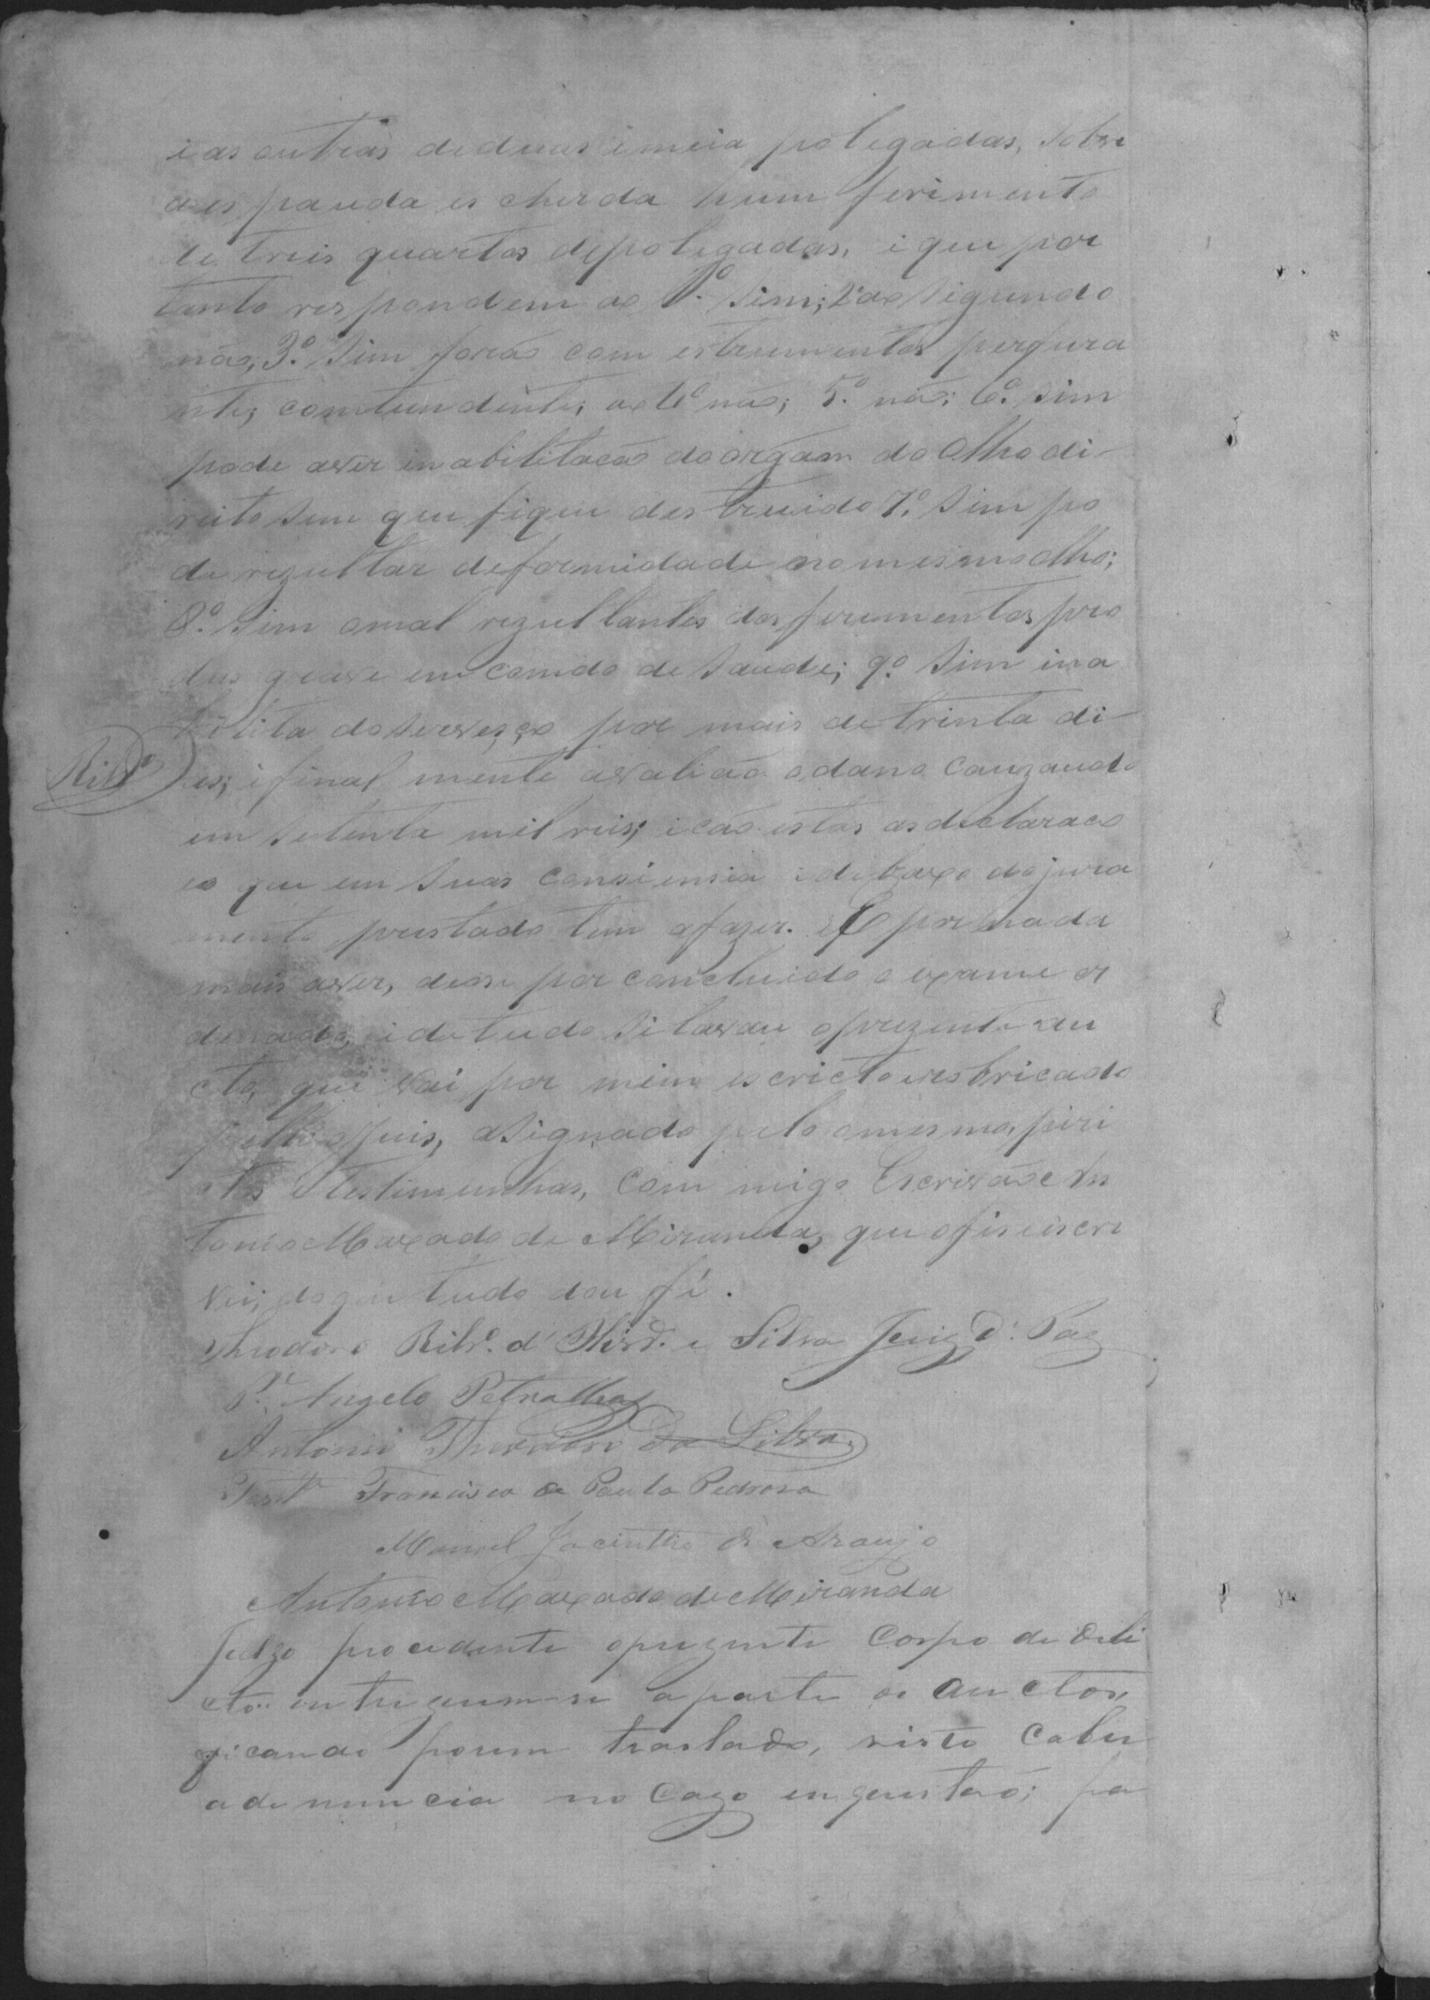 i as outras de duas i meia polegadas, sobre
a es pauda es cherda hum ferimento
de treis quartos de polegadas, i que por
tanto respondem ao 1.º Sim; 2º ao Sigundo
não; 3.º Sim forão com estrumentos perfura
nte, contundente; ao 4º não; 5.º não; 6.º Sim
pode aver inabilitacão do orgam do olho di-
reito sem que fique des truido 7.º Sim po
de rezultar deformidade no mesmo olho;
8.º Sim o mal rezultantes dos ferimentos pro
dus grave em comodo de Saude; 9.º Sim ina
bilita do serviço por mais de trinta di-
Ribr.º
as; i final mente avalião o dano cauzado
em setenta mil reis; i cão estas as declaraco
es que em suas consiensia i de baxo do jura
mento prestado tem a fazer. E por nada
mais aver, deose por concluido o exame or
denado; i de tudo Si lavrou o prezente au
cto, que vai por mim escricto e rubricado
pello Juis, asignado pelo o mesmo, piri
tos e testimunhas, com migo Escrivão An
tonio Maxado de Miranda, que o fis e iscre
vi; do que tudo dou fé.
Theodoro Ribr.º d' e Silva Juiz d' Paz
P.e Angelo
Antonio Theodoro da Silva
Test.ª Francisco de Paula Pedroza
Manoel Jacintho de Araujo
Antonio Maxado de Miranda
Julgo procedente o prezente Corpo de deli
cto: entreguem-se a parte os auctos,
ficando porem traslado, visto caber
a denuncia no cazo em questão; pa